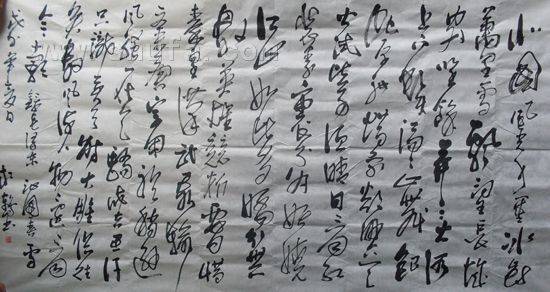 北国风光千里冰封
万里雪飘望长城
内外惟馀莽莽大河
上下顿失滔滔山舞银
蛇原驰蜡象欲与天
公试比高须晴日看红
装素裹分外妖娆
江山如此多娇引无
数英雄竞折腰惜
秦皇汉武略输
文采唐宗宋祖稍逊
风骚一代天骄成吉思汗
只识弯弓射大雕俱往
矣数风流人物还看
今朝 沁园春雪
年夏日 书